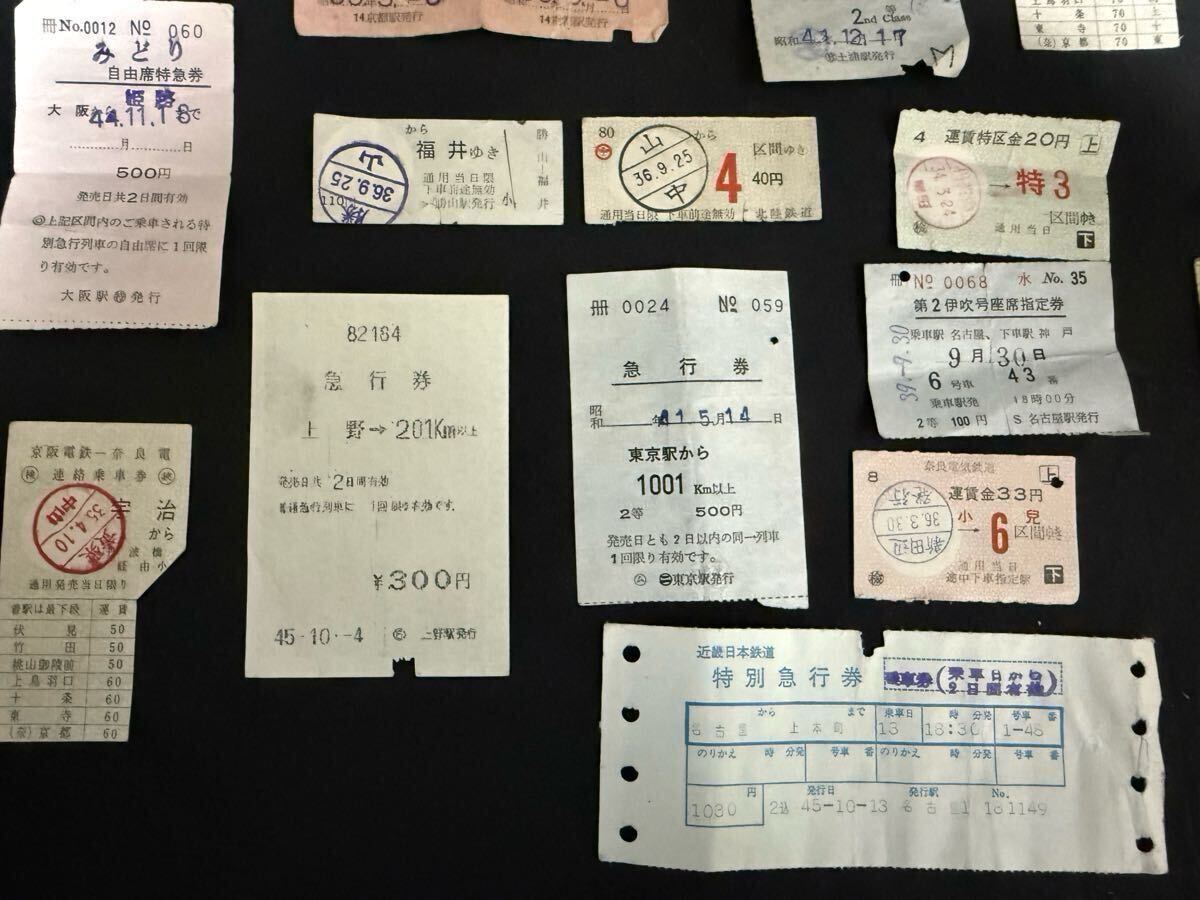 冊 No.0012 No 060
みどり
自由席特急券
大阪 姫路 まで
44.11.18
月 日
500円
発売日共2日間有効
上記区間内のご乗車される特
別急行列車の自由席に1回限
り有効です。
大阪駅 発行
14京都駅発行
2等
2nd Class
昭和 41.12.17
土浦駅発行
上鳥羽口 70
十条 70
東寺 70
(奈)京都 70
から
福井ゆき
通用当日限
下車前途無効
勝山駅発行
小
勝山
36.9.25
110
80
から
山中
36.9.25
4
区間ゆき
40円
通用当日限 下車前途無効 北陸鉄道
4 運賃特区金20円 上
→特3
区間ゆき
通用当日
下
82184
急行券
上野→201Km以上
発売日共2日間有効
普通急行列車に1回限り有効です.
¥300円
45-10.-4 上野駅発行
冊 0024 No 059
急行券
昭和 年 41 5月14日
東京駅から
1001 Km以上
2等 500円
発売日とも2日以内の同一列車
1回限り有効です。
東京駅発行
冊 No 0068 水 No. 35
第2伊吹号座席指定券
乗車駅 名古屋、下車駅 神戸
9月30日
39.-9.30
6号車 43番
乗車駅発 18時00分
2等 100円 S 名古屋駅発行
8 奈良電気鉄道 上
運賃金33円
新田辺
36.3.30
発行
小児
→6 区間ゆき
通用当日
途中下車指定駅
下
京阪電鉄―奈良電
検 連絡乗車券
宇治
から
35.4.10
経由 小
通用発売当日限り
着駅は最下段 運賃
伏見 50
竹田 50
桃山御陵前 50
上鳥羽口 60
十条 60
東寺 60
(奈)京都 60
近畿日本鉄道
特別急行券 乗車券(乗車日から2日間有効)
から まで 乗車日 時 分発 号車 番
名古屋 上本町 13 18:30 1-48
のりかえ 時 分発 号車 番 のりかえ 時 分発 号車 番
円 発行日 発行駅 No.
1030 45-10-13 名古 181149